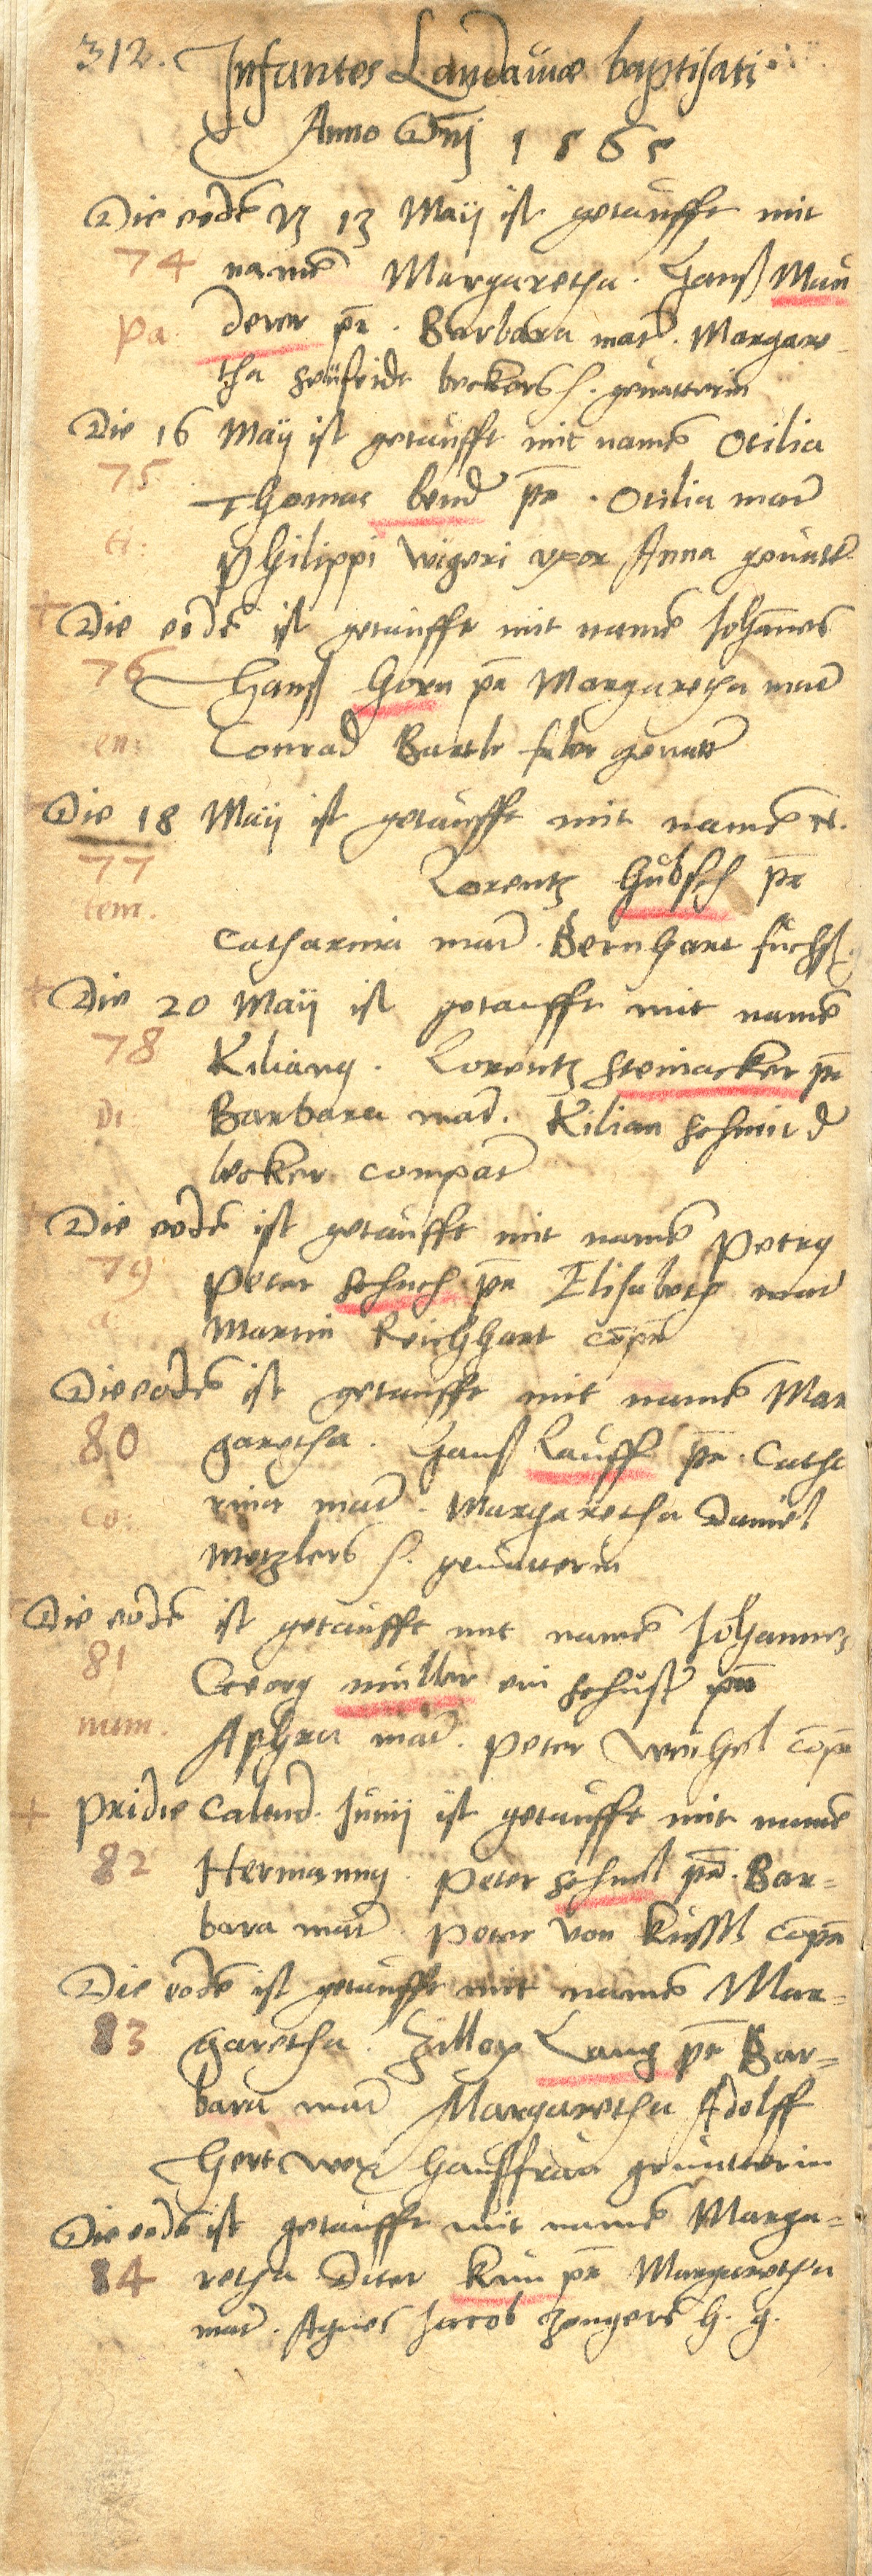 312. Infantes Landauiæ baptisati.
Anno Dnj 1565
Die eodē 13 Maij ist getaufft mit
74 namē Margaretha. Hanß Mau
pa. derer pr. Barbara matr. Margare-
tha beckers h. geuatterin
Die 16 Maij ist getaufft mit namē Otilia
75 Thomas bend pr. Otilia matr
Philippi Wigeri vxor Anna geuatr.
Die eodē ist getaufft mit namē Johānes
76 Hanß Horn pr Margaretha matr
en: Conrad Bartle geuattr
Die 18 Maij ist getaufft mit namē N.
77 Lorentz Hubsch pr
tem.
Catharina matr. Bernhart fuchß.
Die 20 Maij ist getaufft mit namē
78 Kiliang. Lorentz Steinacker pr
Di Barbara matr. Kilian schmit d
becker compatr
Die eodē ist getaufft mit namē Petrg
79 Peter schuch pr Elisabeth matr
a: Martin Reichhart cōpr
Die eodē ist getaufft mit namē Mar
80 garetha. Hanß Lauff pr. Catha
co: rina matr. Margaretha Daniel
Metzlers h. geuatterin
Die eodē ist getaufft mit namē Johannes
81 Georg müller ein schustr pr
num. Aphra matr. Peter Weichel cōpr
Pridie Calend. Junij ist getaufft mit namē
82 Hermanng. Peter schmel pr. Bar-
bara matr. Peter von Kussel cōpr
Die eodē ist getaufft mit namē Mar-
83 garetha. Zillox Lang pr Bar-
bara matr Margaretha Adolff
Hertwex haußfraw geuatterin
Die eodē ist getaufft mit namē Marga-
84 retha Diter Kun pr Margaretha
matr. Agnes Jacob zengers h. g.